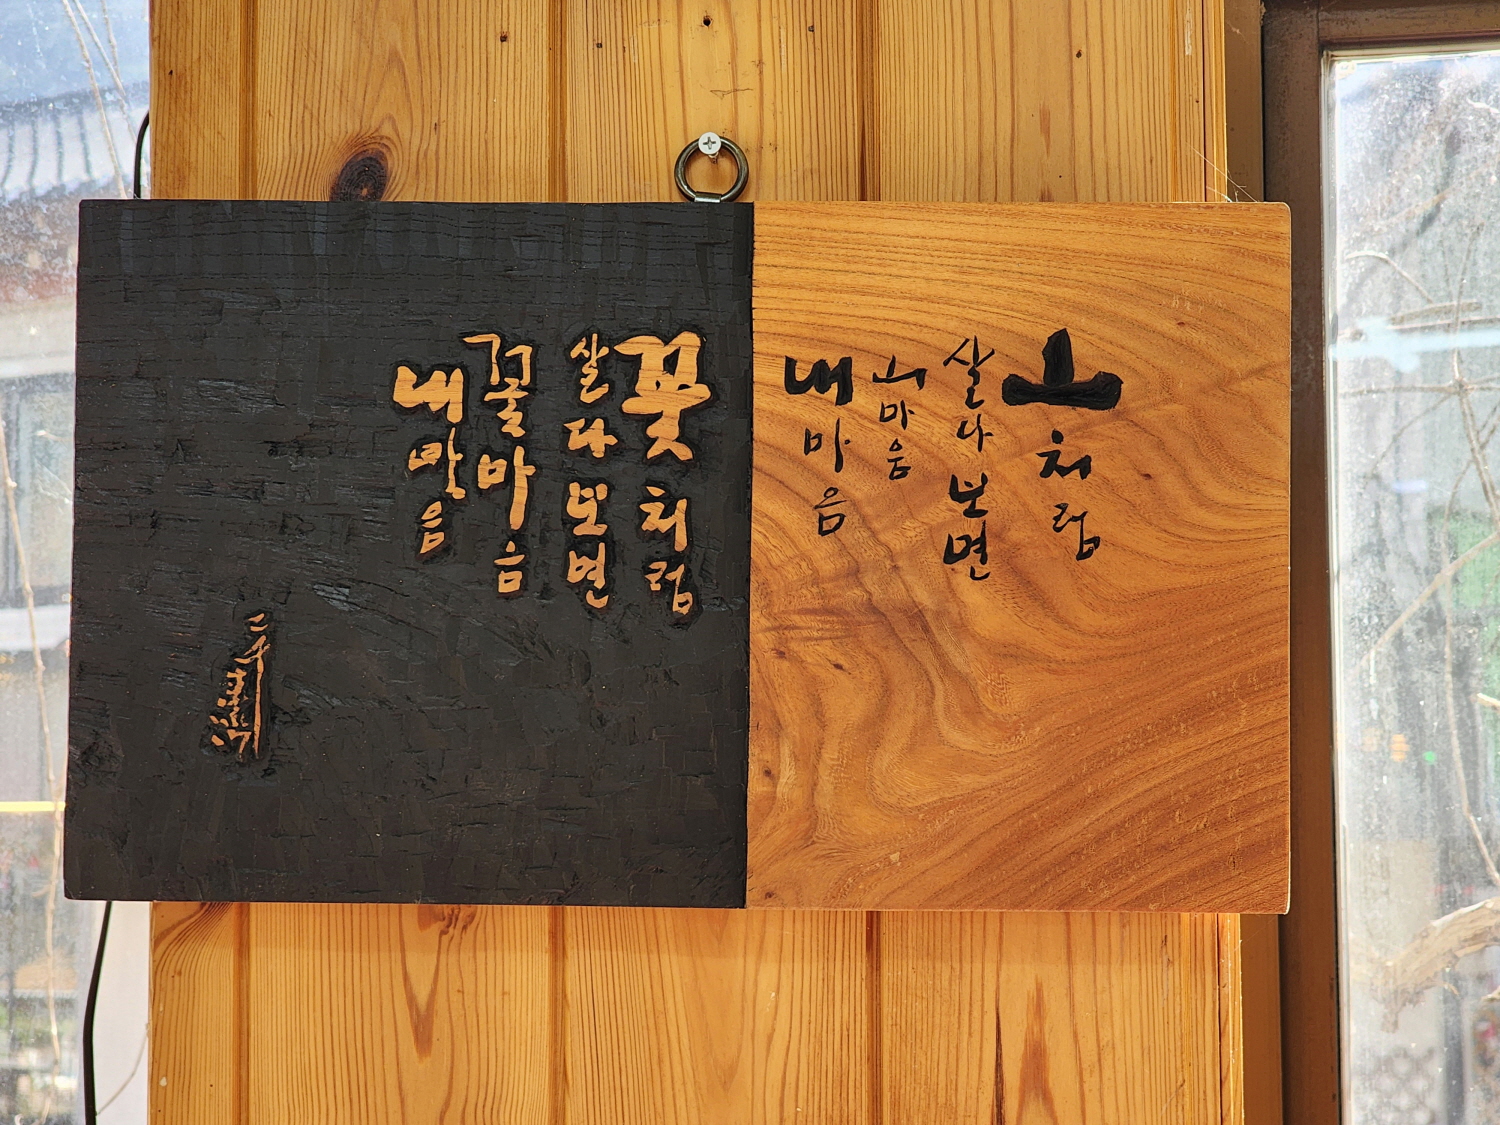 山처럼
살다보면
山마음
내마음
꽃처럼
살다보면
꽃마음
내마음